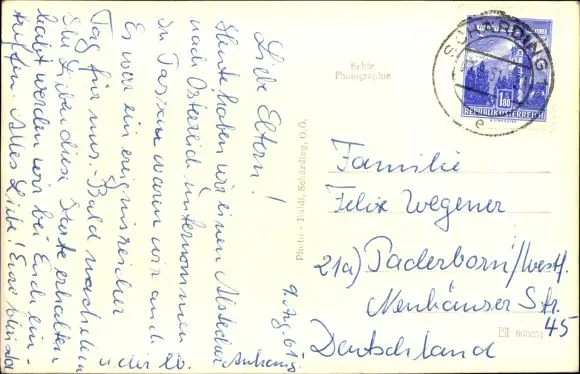 Liebe Eltern!
Heute haben wir einen Abstecher
nach Österreich unternommen
In Passau waren wir auch.
Es war ein ereignisreicher
Tag für uns. - Bald nachdem
Ihr Lieben diese Karte erhalten
habt werden wir bei Euch ein-
treffen. Alles Liebe! Eure
9. Aug. 61.
Echte
Photographie
Photo - Schärding, O.Ö.
SCHÄRDING
e
1.80
REPUBLIK ÖSTERREICH
Familie
Felix Wegener
21a) Paderborn/Westf.
Neuhäuser Str.
45
Deutschland